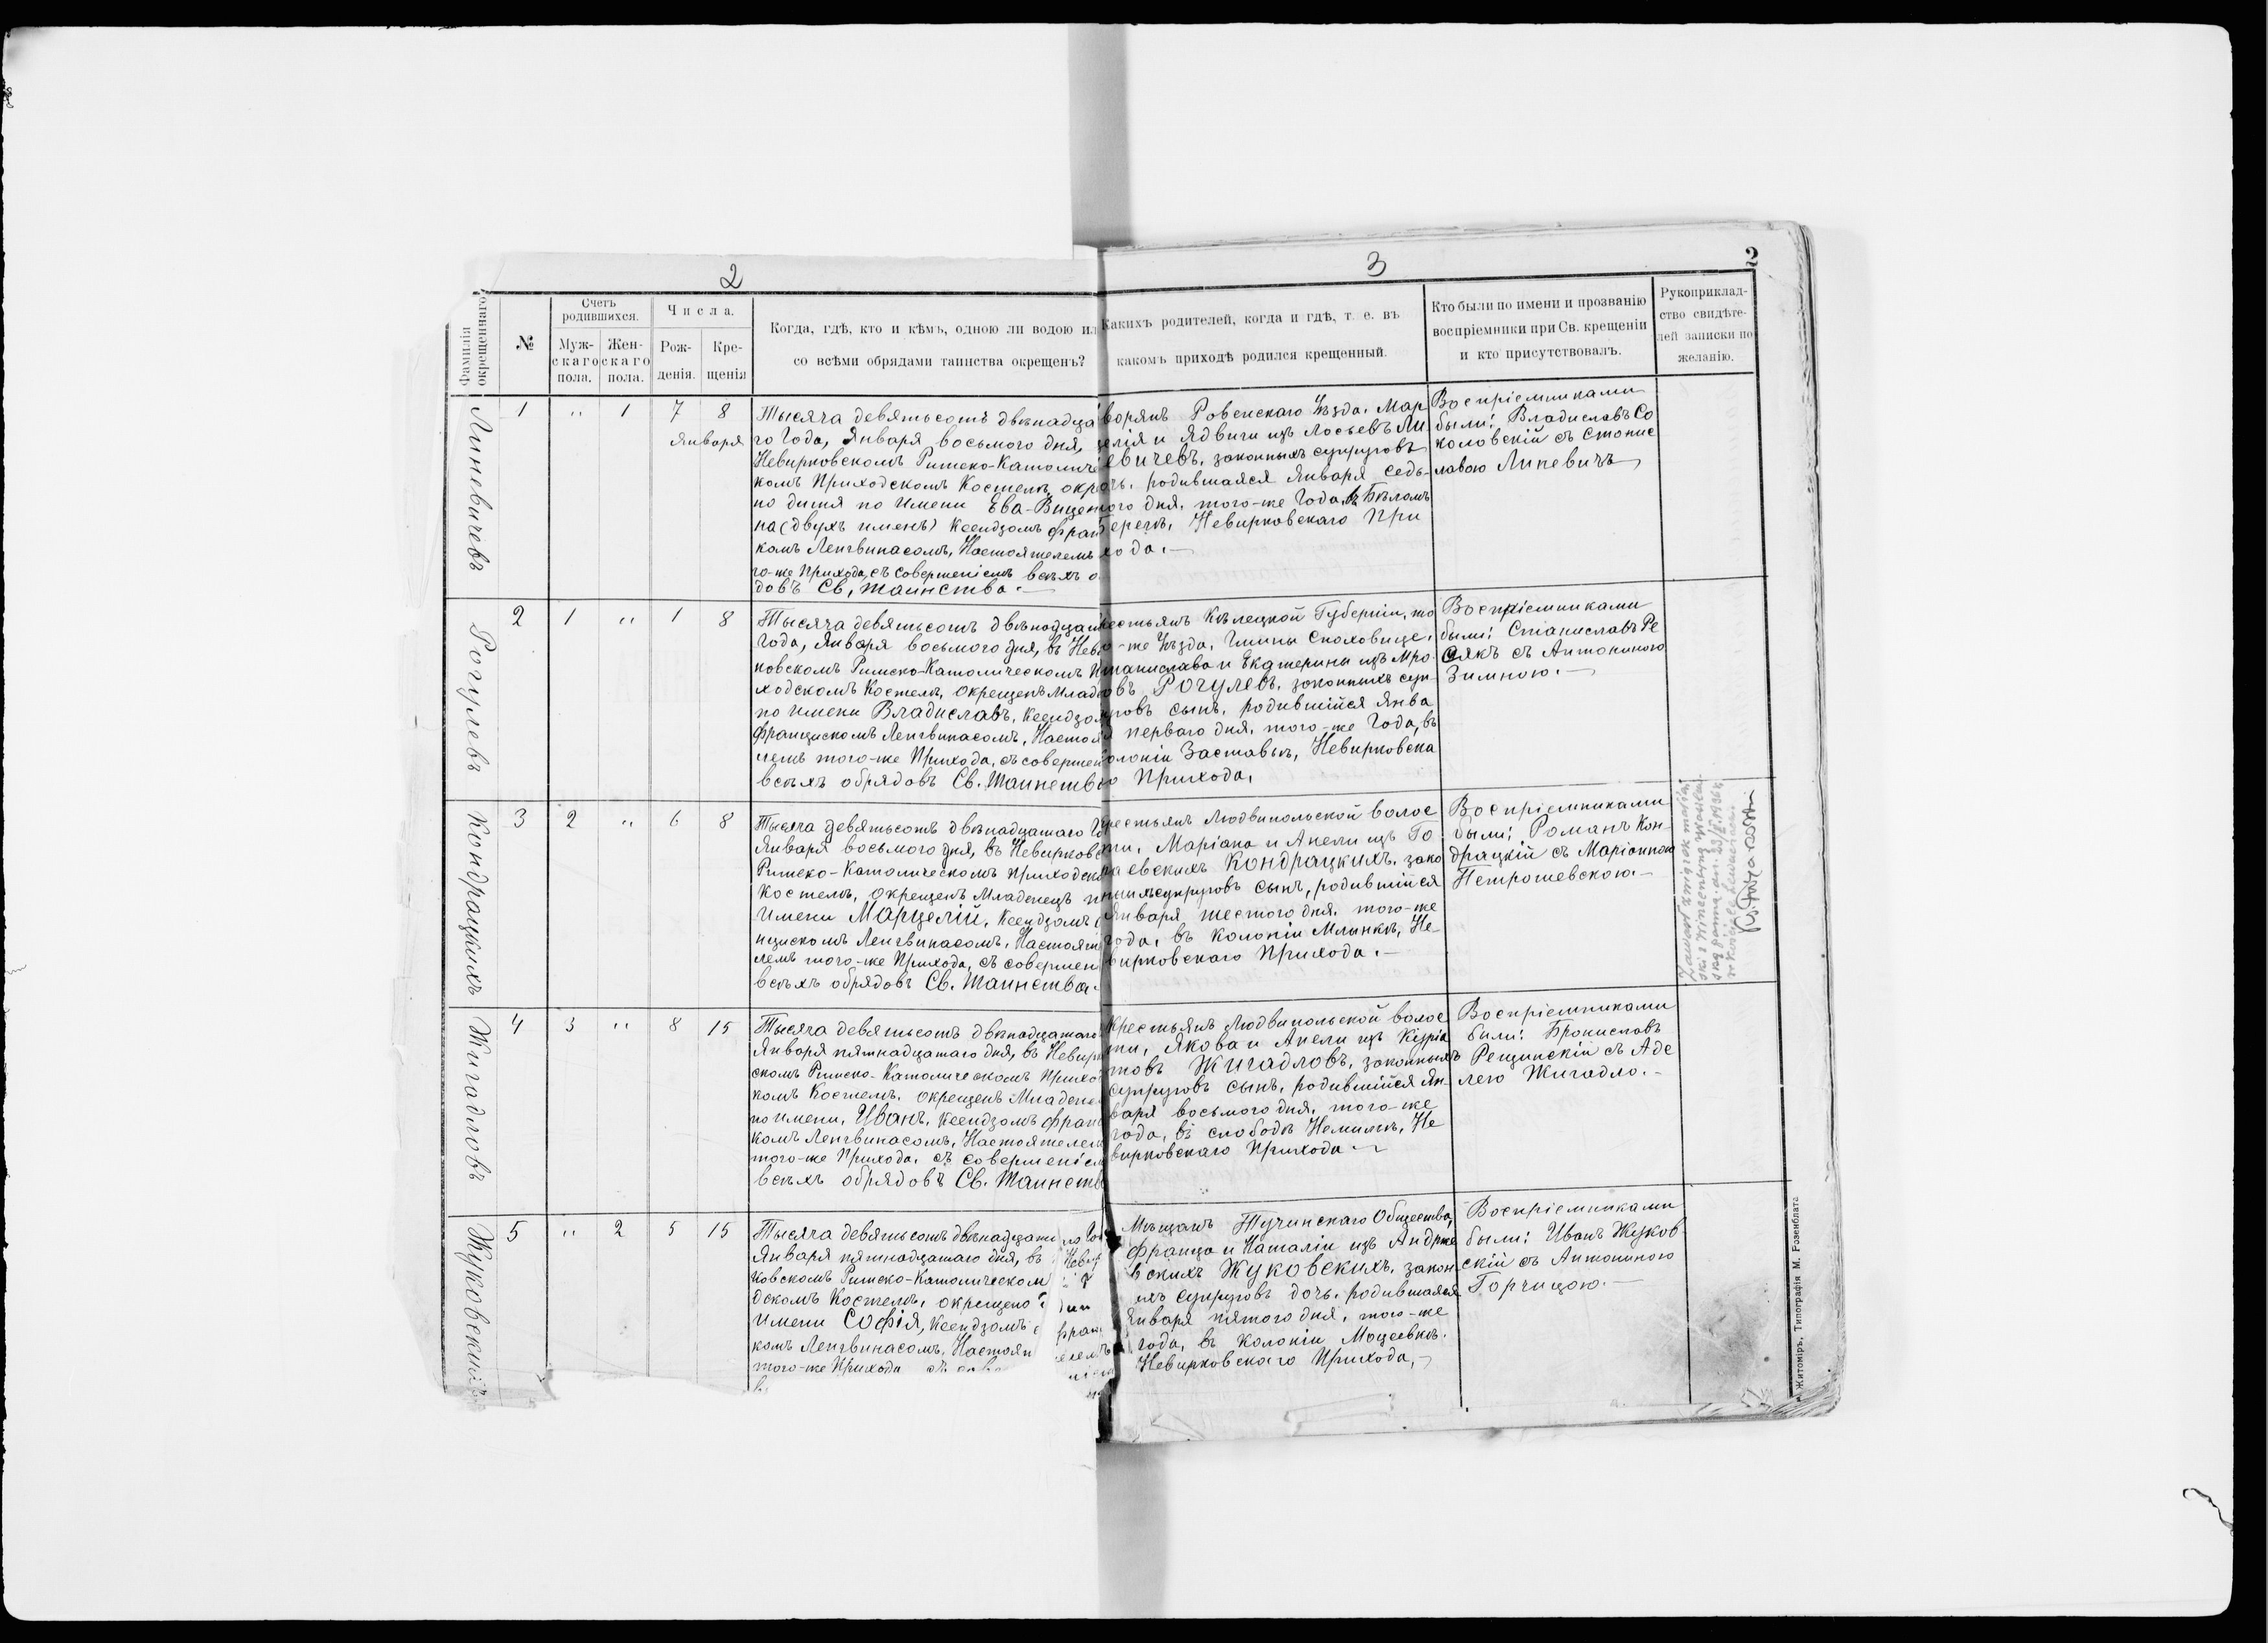 2
3
2
Фамилія окрещеннаго
№
Счетъ родившихся.
Муж-скаго пола.
Жен-скаго пола.
Числа.
Рож-денія.
Кре-щенія
Когда, гдѣ, кто и кѣмъ, одною ли водою ил
со всѣми обрядами таинства окрещенъ?
Какихъ родителей, когда и гдѣ, т. е. въ
какомъ приходѣ родился крещенный.
Кто были по имени и прозванію
воспріемники при Св. крещеніи
и кто присутствовалъ.
Рукоприклад-
ство свидѣте-
лей записки по
желанію.
Линевичевъ
1 " 1 7 8
Января
Тысяча девятьсотъ двѣнадца
го Года, Января восьмого дня,
Невирковскомъ Римско-Католиче
комъ Приходскомъ Костелѣ, окре
но дитя по Имени Ева-Вицен
на (двухъ именъ) Ксендзомъ Фран
комъ Ленгвинасомъ, Настоятелемъ
го-же Прихода, съ совершеніемъ всѣхъ о
довъ Св. Таинства.—
ворянъ Ровенскаго Уѣзда. Мар
целія и Ядвиги изъ Лосьевъ Ли
евичевъ, законныхъ супруговъ
очь, родившаяся Января седь-
ого дня, того-же Года, въ Бѣломъ
ерегѣ, Невирковскаго При
хода.—
Воспріемниками
были: Владиславъ Со
коловскій съ Станис
лавою Линевичъ
Рогулевъ
2 1 " 1 8
Тысяча девятьсотъ двѣнадцат
Года, Января восьмого дня, въ Неви
ковскомъ Римско-Католическомъ П
ходскомъ Костелѣ, окрещенъ Млад
по имени Владиславъ, Ксендзо
Францискомъ Ленгвинасомъ, Настоя
лемъ того-же Прихода, съ совершен
всѣхъ обрядовъ Св. Таинства
естьянъ Кѣлецкой Губерніи, то
-же Уѣзда, Гмины Сноховице,
танислава и Екатерины изъ Мро
овъ Рогулевъ, законныхъ суп
ровъ сынъ, родившійся Янва
я перваго дня, того-же Года, въ
олоніи Заставьѣ, Невирковска
го Прихода.
Воспріемниками
были: Станиславъ Ре
сякъ съ Антониною
Зимною.—
Кондрацкихъ
3 2 " 6 8
Тысяча девятьсотъ двѣнадцатаго Го
Января восьмого дня, въ Невирковс
Римско-Католическомъ Приходско
Костелѣ, окрещенъ Младенецъ п
Имени Марцелій, Ксендзомъ
нцискомъ Ленгвинасомъ, Настоят
лемъ того-же Прихода, съ совершен
всѣхъ обрядовъ Св. Таинства.
рестьянъ Людвипольской волос
ти, Маріана и Анели изъ Го
аевскихъ Кондрацкихъ, зако
ныхъ супруговъ сынъ, родившійся
Января шестого дня, того-же
года, въ Колоніи Млинкѣ, Не
вирковскаго Прихода.—
Воспріемниками
были: Романъ Кон-
драцкій съ Маріанною
Петрошевскою.—
Жигадловъ
4 3 " 8 15
Тысяча девятьсотъ двѣнадцатаго
Января пятнадцатаго дня, въ Невирк
скомъ Римско-Католическомъ Прихо
комъ Костелѣ, окрещенъ Младене
по имени, Иванъ, Ксендзомъ Фран
комъ Ленгвинасомъ, Настоятелем
того-же Прихода, съ совершеніем
всѣхъ обрядовъ Св. Таинств
Крестьянъ Людвипольской волос
ти, Якова и Анели изъ
Жигадловъ, законныхъ
супруговъ сынъ, родившійся Ян-
варя восьмого дня, того-же
года, въ слободѣ Немилѣ, Не
вирковскаго Прихода
Воспріемниками
были: Брониславъ
Рещинскій съ Аде
лею Жигадло.—
Жуковскихъ
5 " 2 5 15
Тысяча девятьсотъ двѣнадцата го Го
Января пятнадцатаго дня, въ Невир
ковскомъ Римско-Католическом
дскомъ Костелѣ, окрещено
Имени Софія, Ксендзомъ Фран
комъ Ленгвинасомъ, Настоят елемъ
того-же Прихода
Мѣщанъ Тучинскаго Общества,
Франца и Наталіи изъ Андрже
вскихъ Жуковскихъ, закон
ыхъ супруговъ дочь, родившаяся
Января пятого дня, того-же
года, въ Колоніи Моцеевкѣ,
Невирковскаго Прихода,
Воспріемниками
были: Иванъ Жуков
скій съ Антониною
Горчицою.—
Житоміръ, Типографія М. Розенблата